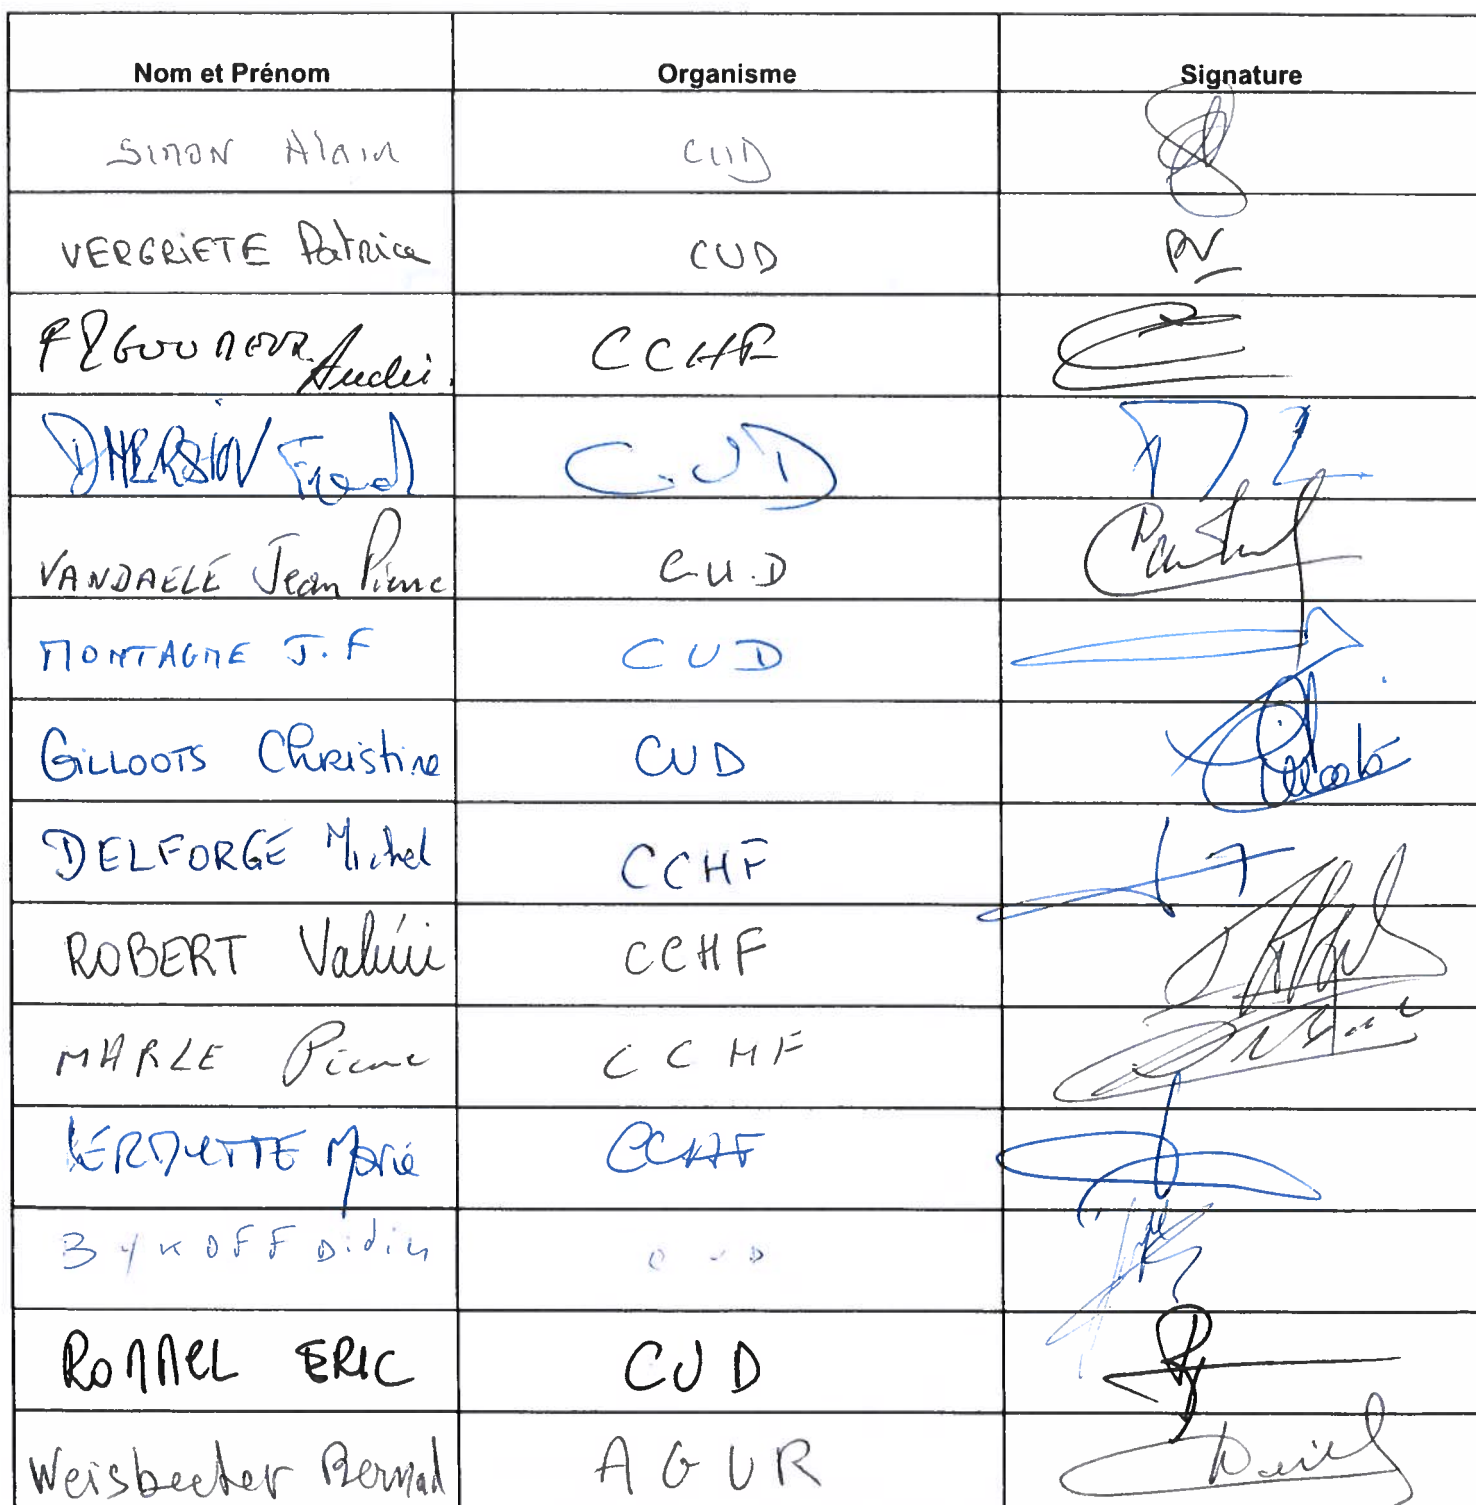 Nom et Prénom Organisme Signature
SIMON Alain CUD
VERGRIETE Patrice CUD PV
André CCHF
DMERSIN Fred C.U.D
VANDAELE Jean Pierre C.U.D
MONTAGNE J.F CUD
GILLOOTS Christine CUD
DELFORGE Michel CCHF
ROBERT Valérie CCHF
MARLE Pierre CCHF
VERDUYTTE Marie CCHF
BYKOFF Didier CUD
ROMMEL ERIC CUD
Weisbecker Bernard AGUR